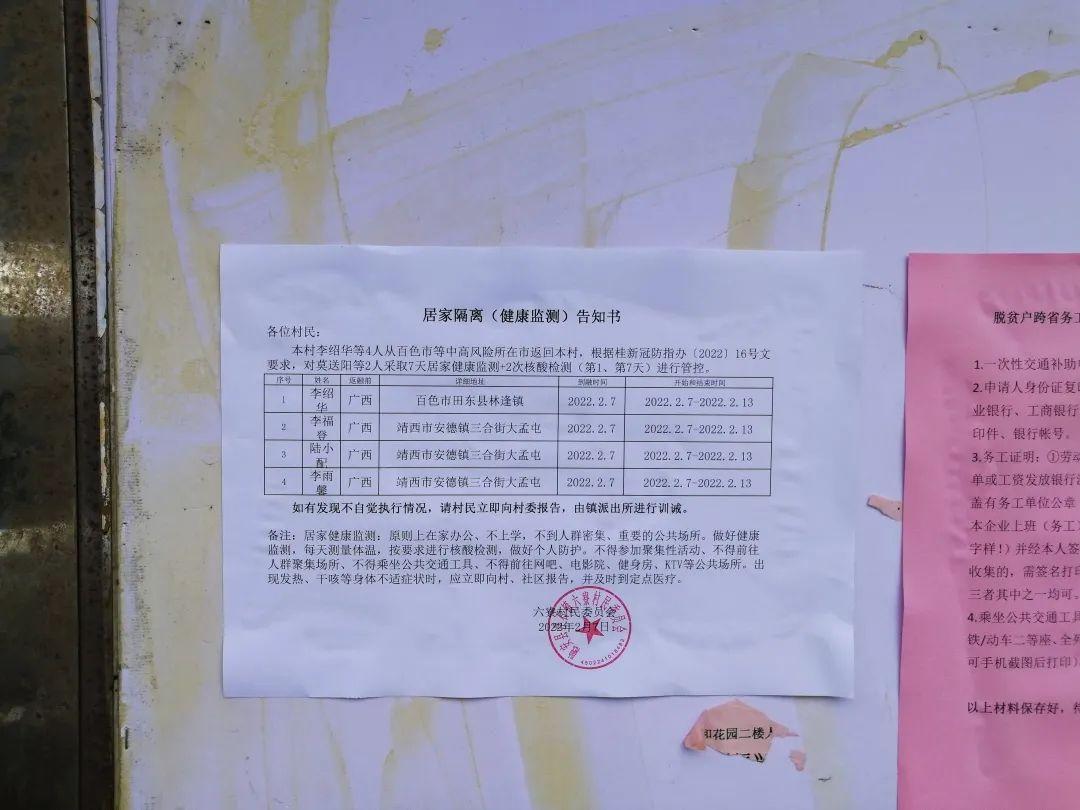 居家隔离（健康监测）告知书
各位村民：
本村李绍华等4人从百色市等中高风险所在市返回本村，根据桂新冠防指办〔2022〕16号文
要求，对莫送阳等2人采取7天居家健康监测+2次核酸检测（第1、第7天）进行管控。
序号 姓名 返融前 详细地址 到融时间 开始和结束时间
1 李绍华 广西 百色市田东县林逢镇 2022.2.7 2022.2.7-2022.2.13
2 李福登 广西 靖西市安德镇三合街大孟屯 2022.2.7 2022.2.7-2022.2.13
3 陆小配 广西 靖西市安德镇三合街大孟屯 2022.2.7 2022.2.7-2022.2.13
4 李雨馨 广西 靖西市安德镇三合街大孟屯 2022.2.7 2022.2.7-2022.2.13
如有发现不自觉执行情况，请村民立即向村委报告，由镇派出所进行训诫。
备注：居家健康监测：原则上在家办公、不上学，不到人群密集、重要的公共场所。做好健康
监测，每天测量体温，按要求进行核酸检测，做好个人防护。不得参加聚集性活动、不得前往
人群聚集场所、不得乘坐公共交通工具、不得前往网吧、电影院、健身房、KTV等公共场所。出
现发热、干咳等身体不适症状时，应立即向村、社区报告，并及时到定点医疗。
六寮村民委员会
2022年2月7日
脱贫户跨省务工
1.一次性交通补助
2.申请人身份证复
业银行、工商银行
印件、银行帐号。
3.务工证明：①劳动
单或工资发放银行
盖有务工单位公章
本企业上班（务工
字样！）并经本人签
收集的，需签名打印
三者其中之一均可。
4.乘坐公共交通工具
铁/动车二等座、全列
可手机截图后打印）
以上材料保存好，
和花园二楼人